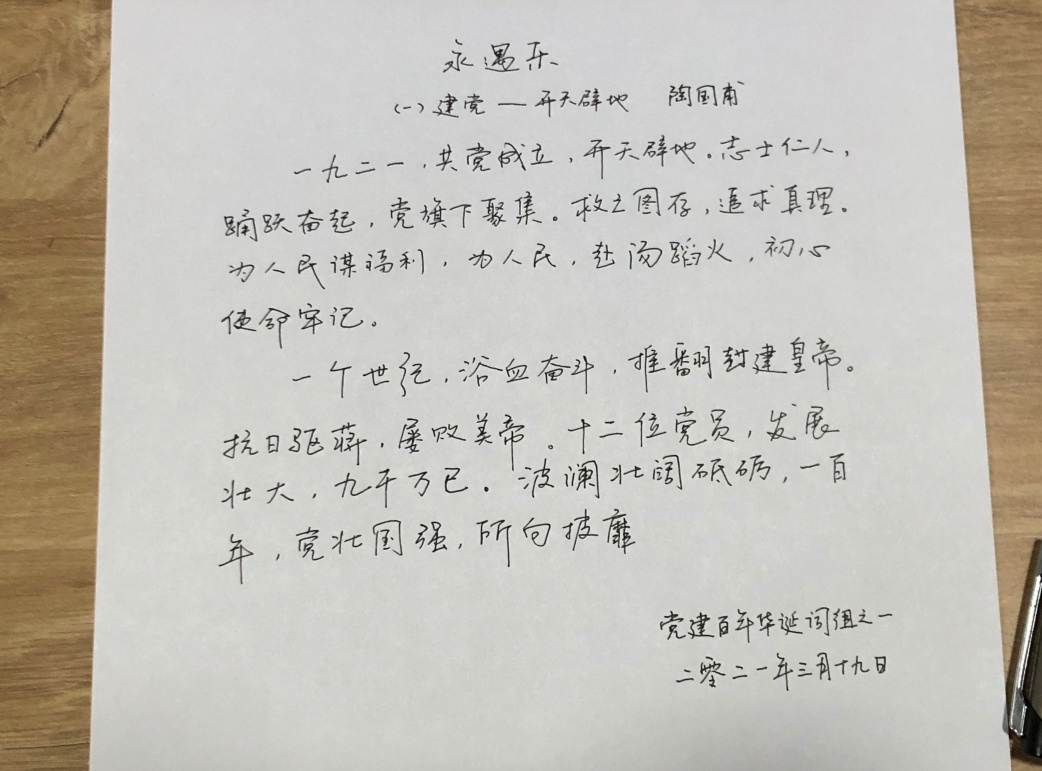 永遇乐
(一)建党—开天辟地 陶国甫
一九二一,共党成立,开天辟地。志士仁人,
踊跃奋起,党旗下聚集。救亡图存,追求真理。
为人民谋福利,为人民,赴汤蹈火,初心
使命牢记。
一个世纪,浴血奋斗,推翻封建皇帝。
抗日驱蒋,屡败美帝。十二位党员,发展
壮大,九千万已。波澜壮阔砥砺,一百
年,党壮国强,所向披靡
党建百年华诞词组之一
二零二一年三月十九日